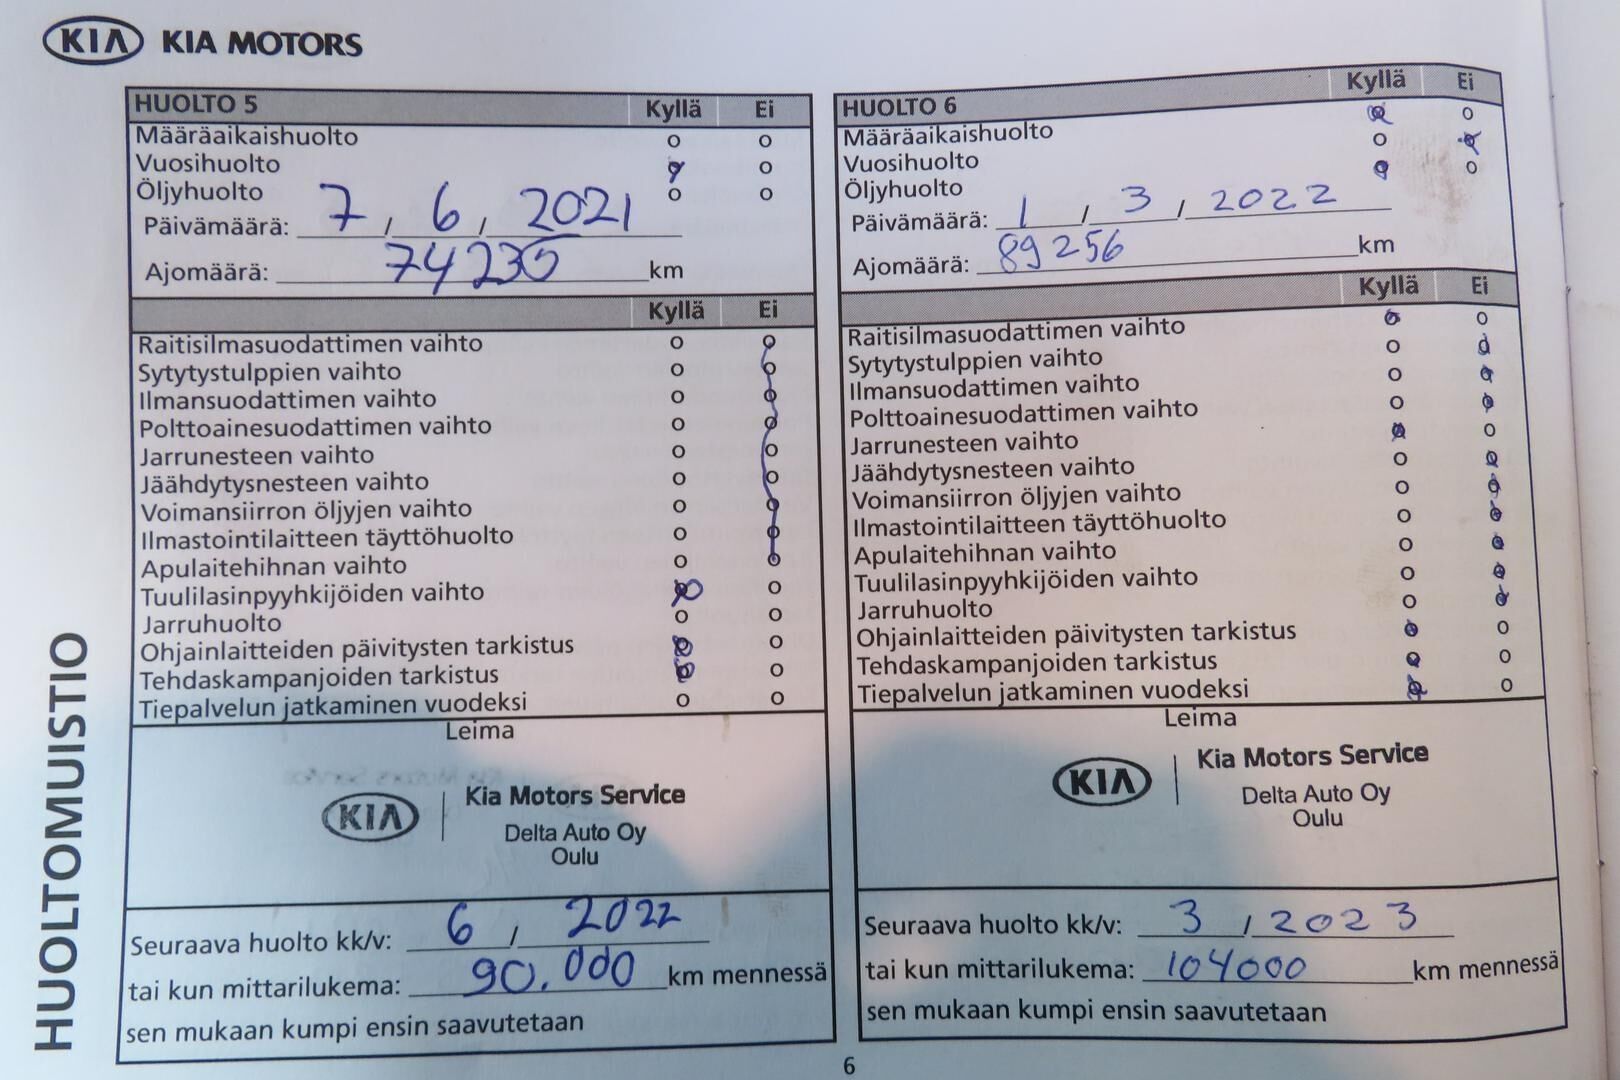 KIA KIA MOTORS
HUOLTOMUISTIO
HUOLTO 5 Kyllä Ei
Määräaikaishuolto
Vuosihuolto
Öljyhuolto
Päivämäärä: 7 / 6 / 2021
Ajomäärä: 74235 km
Kyllä Ei
Raitisilmasuodattimen vaihto
Sytytystulppien vaihto
Ilmansuodattimen vaihto
Polttoainesuodattimen vaihto
Jarrunesteen vaihto
Jäähdytysnesteen vaihto
Voimansiirron öljyjen vaihto
Ilmastointilaitteen täyttöhuolto
Apulaitehihnan vaihto
Tuulilasinpyyhkijöiden vaihto
Jarruhuolto
Ohjainlaitteiden päivitysten tarkistus
Tehdaskampanjoiden tarkistus
Tiepalvelun jatkaminen vuodeksi
Leima
KIA Kia Motors Service
Delta Auto Oy
Oulu
Seuraava huolto kk/v: 6 / 2022
tai kun mittarilukema: 90.000 km mennessä
sen mukaan kumpi ensin saavutetaan
HUOLTO 6 Kyllä Ei
Määräaikaishuolto
Vuosihuolto
Öljyhuolto
Päivämäärä: 1 / 3 / 2022
Ajomäärä: 89256 km
Kyllä Ei
Raitisilmasuodattimen vaihto
Sytytystulppien vaihto
Ilmansuodattimen vaihto
Polttoainesuodattimen vaihto
Jarrunesteen vaihto
Jäähdytysnesteen vaihto
Voimansiirron öljyjen vaihto
Ilmastointilaitteen täyttöhuolto
Apulaitehihnan vaihto
Tuulilasinpyyhkijöiden vaihto
Jarruhuolto
Ohjainlaitteiden päivitysten tarkistus
Tehdaskampanjoiden tarkistus
Tiepalvelun jatkaminen vuodeksi
Leima
KIA Kia Motors Service
Delta Auto Oy
Oulu
Seuraava huolto kk/v: 3 / 2023
tai kun mittarilukema: 104000 km mennessä
sen mukaan kumpi ensin saavutetaan
6